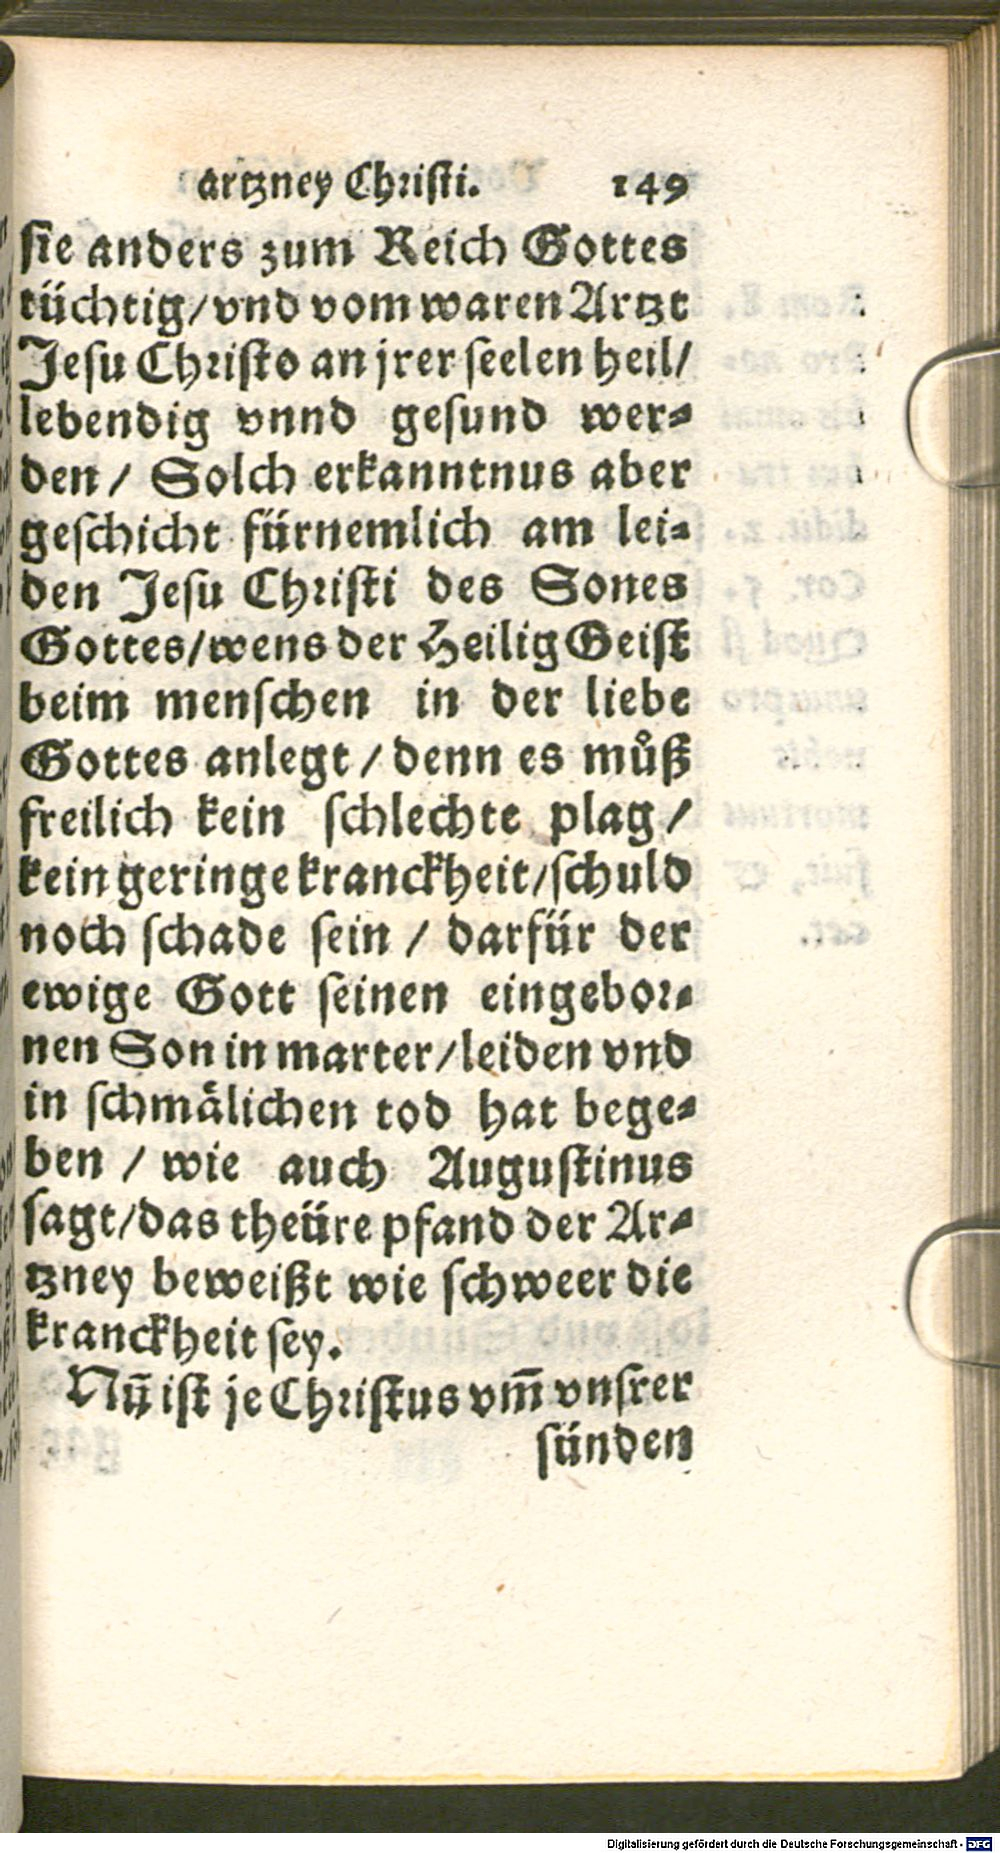 artzney Christi. 149
sie anders zum Reich Gottes
tüchtig/vnd vom waren Artzt
Jesu Christo an jrer seelen heil/
lebendig vnnd gesund wer⸗
den/ Solch erkanntnus aber
geschicht fürnemlich am lei⸗
den Jesu Christi des Sones
Gottes/wens der Heilig Geist
beim menschen in der liebe
Gottes anlegt/denn es můß
freilich kein schlechte plag/
kein geringe kranckheit/schuld
noch schade sein/ darfür der
ewige Gott seinen eingebor⸗
nen Son in marter/leiden vnd
in schmålichen tod hat bege⸗
ben/ wie auch Augustinus
sagt/das theüre pfand der Ar⸗
tzney beweißt wie schweer die
kranckheit sey.
Nū ist je Christus vm̄ vnsrer
sünden
Digitalisierung gefördert durch die Deutsche Forschungsgemeinschaft - DFG